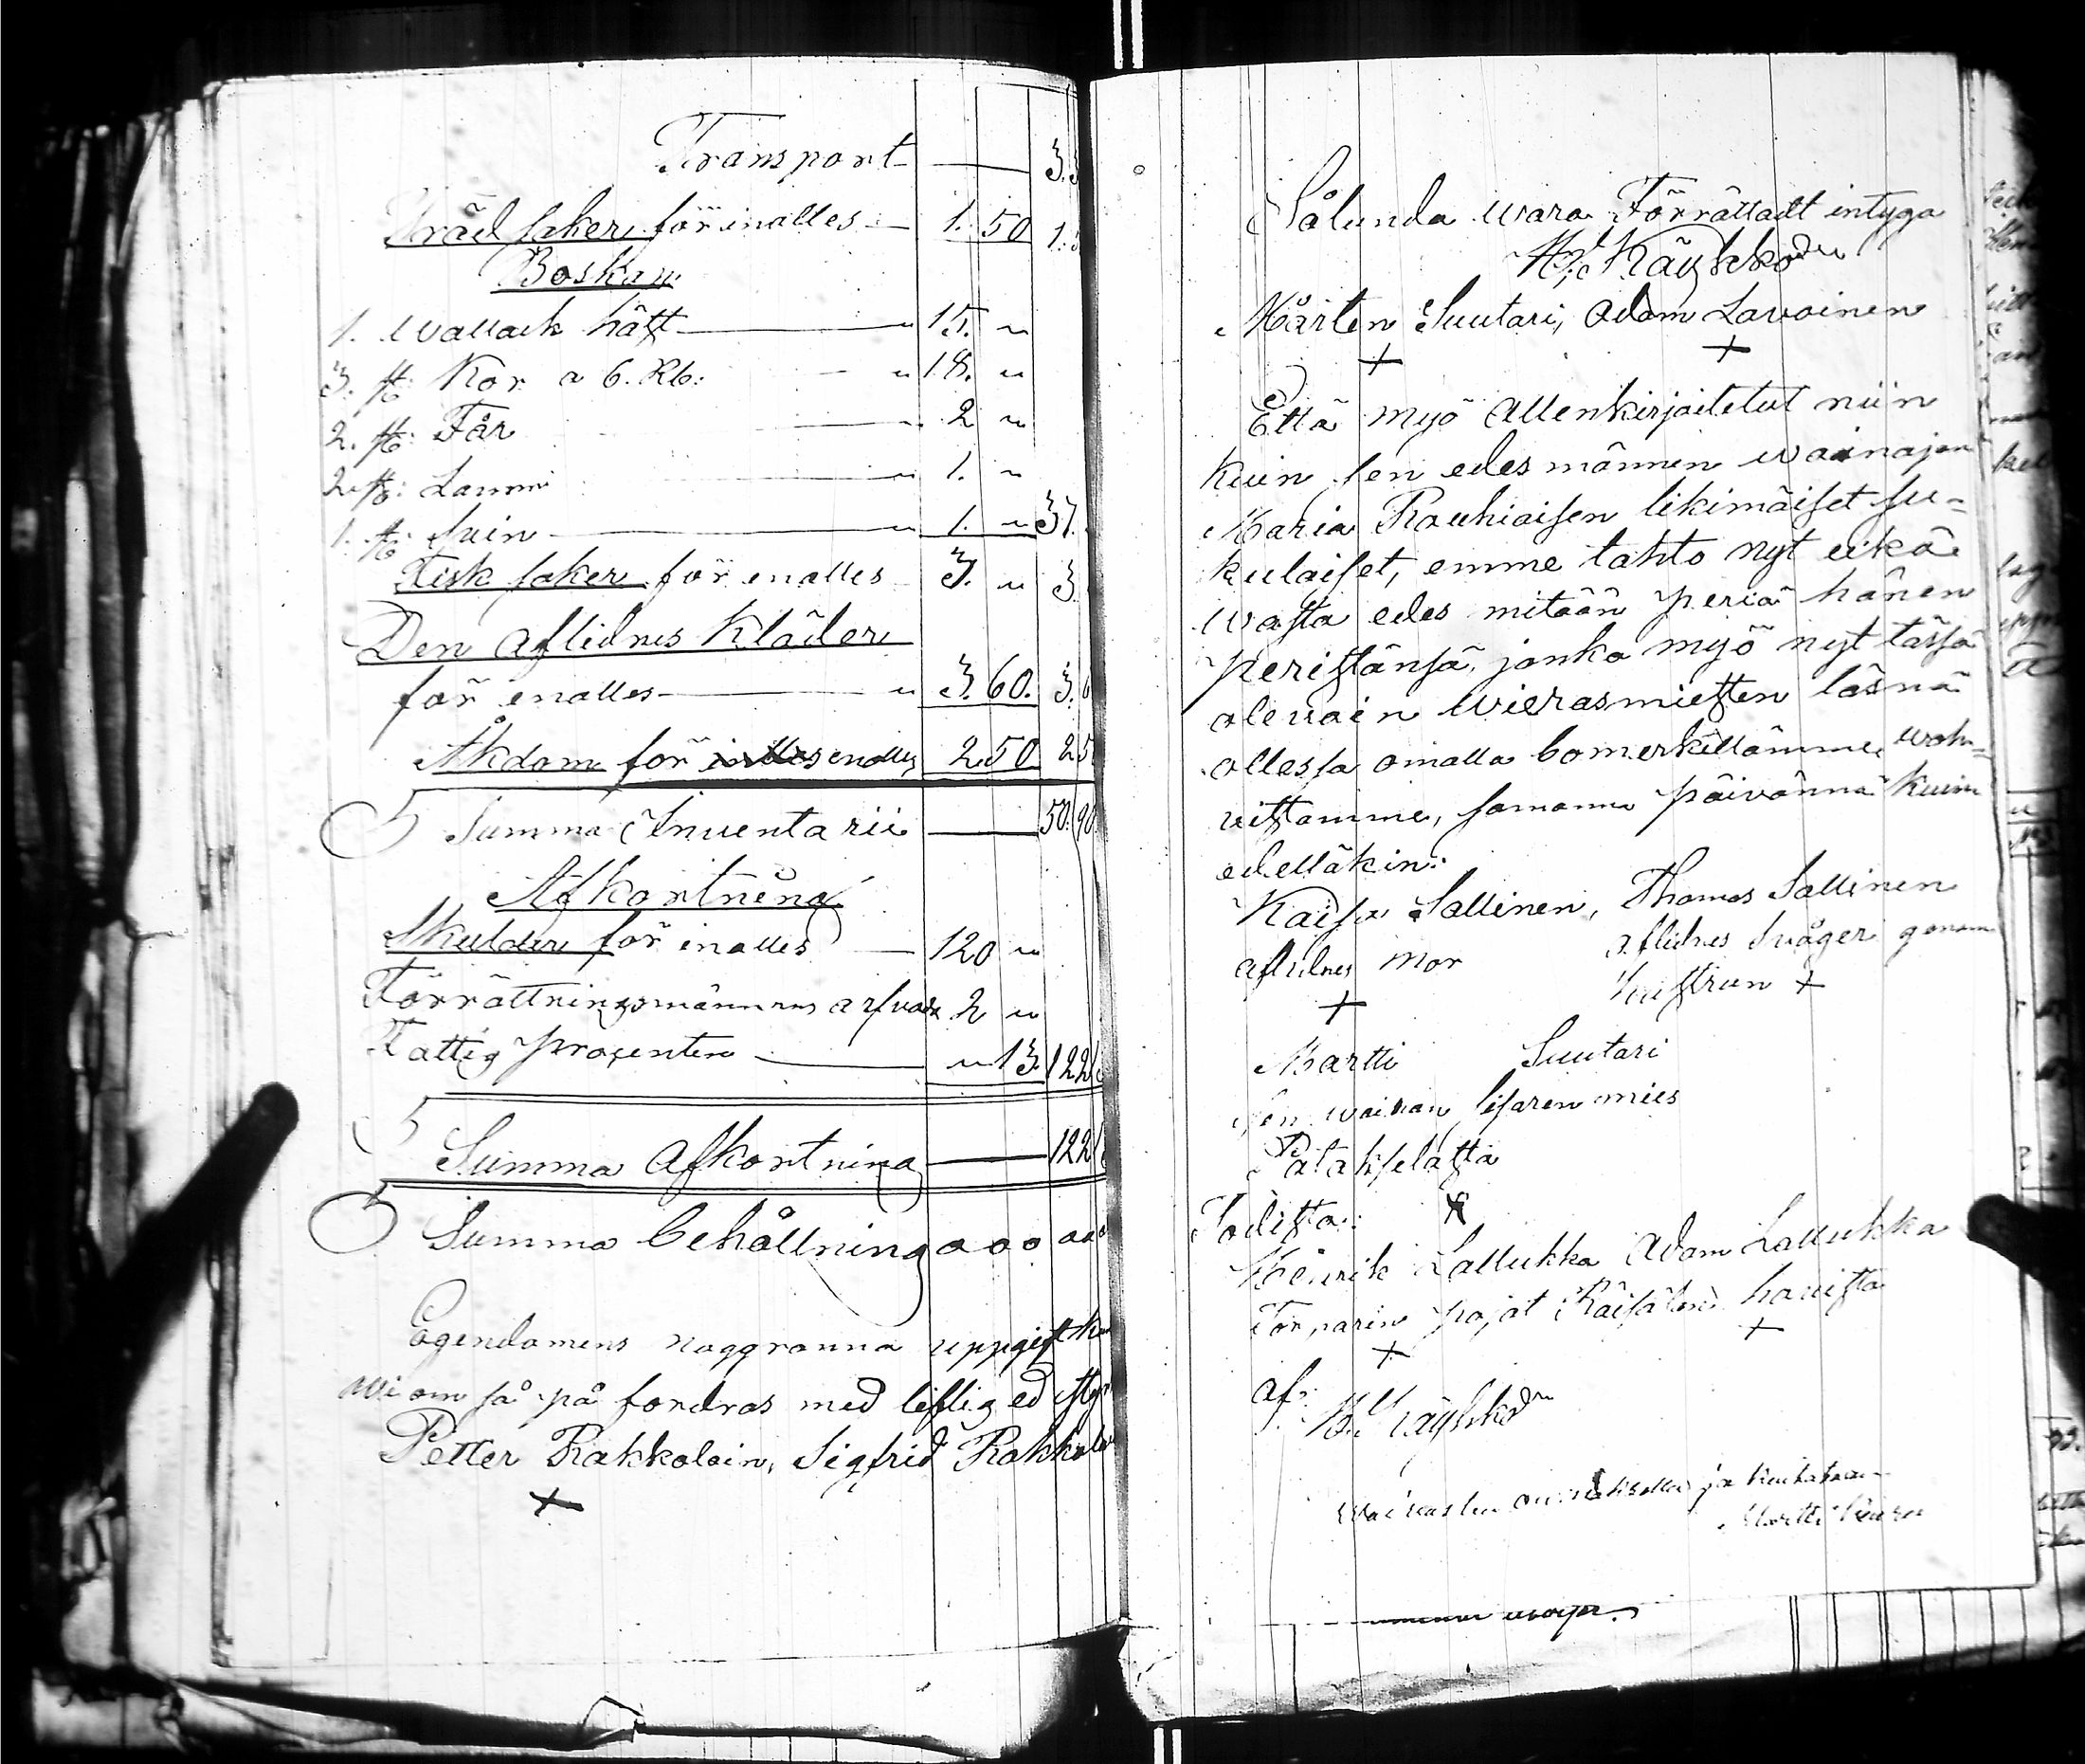 Transport — 3.3
Träd saker för inalles — 1. 50 1.5
Boskap
1. Wallack häst — " 15. "
3. st: Kor a 6. Rb: — " 18. "
2. st: Får — 2 "
2. st: Lamm — " 1. "
1. st: Svin — " 1. " 37.
Fisk saker för enalles 3. " 3.
Den aflidnes Kläder
för enalles — " 3. 60. 3. 6
Åkdom för enalles 2.50 2.5
Summa Inventarii — 50. 90
Afkortning
Skulder för inalles — 120 "
Förrättningsmännens arfvode 2 "
Fattig procenten — " 13. 122
Summa Afkortning — 122
Summa behållning ooo ooo
Egendomens noggranna uppgift
wi om så på fordras med liflig ed
Petter Rakkolain, Sigfrid Rakkolai
+
Sålunda wara Förrättadt intyga
Käyhkö
Mårten Suutari, Adam Lavoinen
+ +
Että myö allenkirjoitetut niin
kuin sen edesmännen wainajan
Maria Rouhiaisen likimäiset su-
kulaiset, emme tahto nyt eikä
wasta edes mitään periä hänen
peristänsä, jonka myö nyt tässä
olevain wierasmiesten läsnä
ollessa omalla bomerkillämme wah-
vistamme, samanna päivänna kuin
edelläkin:
Kaisa Sallinen, Thomas Sallinen
aflidnes mor aflidnes Svåger genom
+ hustrun +
Martti Suutari
sen wainan sisaren mies
Patakselasta
Todista: x
Henrik Lallukka Adam Lallukka
Torparin pojat Räisälen hovista
+ +
af:
Käyhkö
ja
Martti